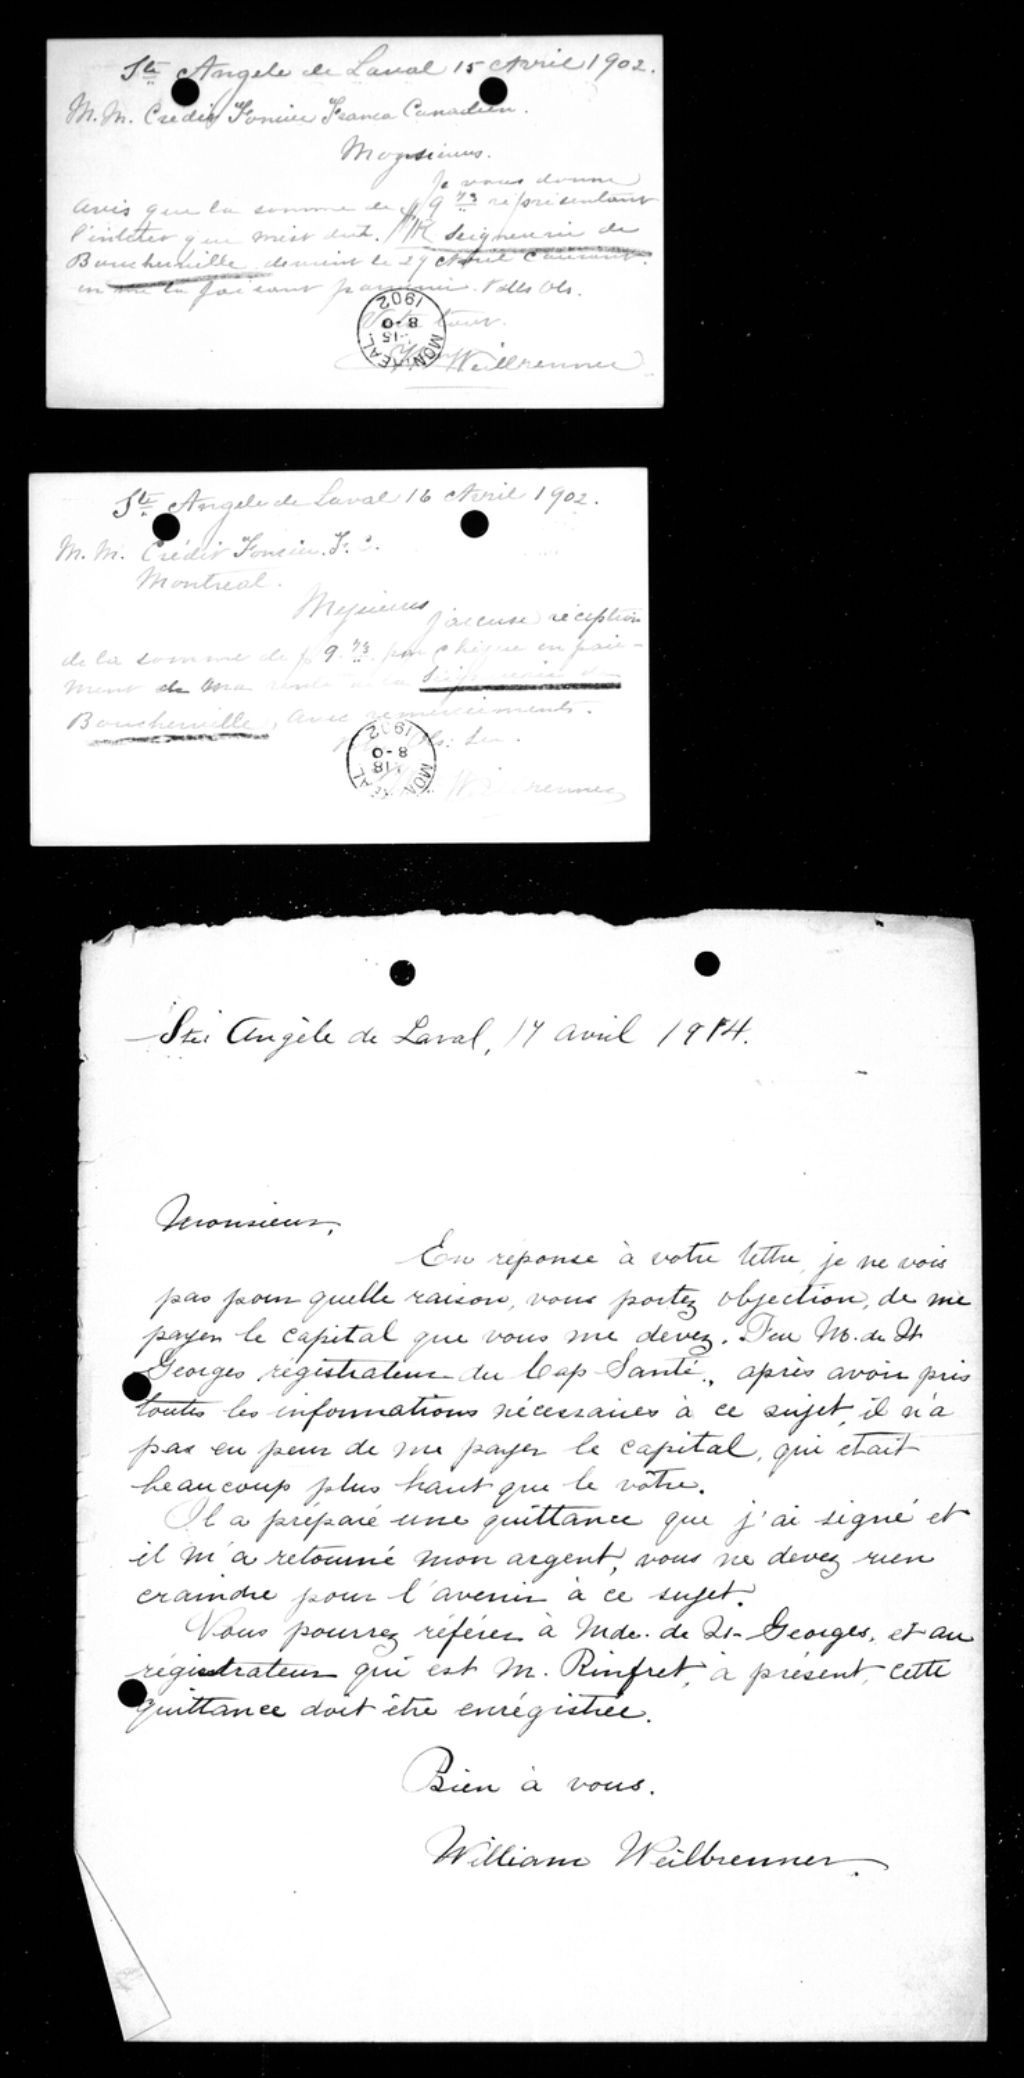 Ste Angele de Laval 15 Avril 1902.
M. M. Credit Foncier Franco Canadien.
Messieurs.
Je vous donne
avis que la somme de $9 73 représentant
l'intérêt qui m'est dut. Seigneurie de
Boucherville devient le 29 Avril Courant.
en me la faisant parvenir. Vous Obs.
Votre tour.
Weilbrenner
MONTREAL
15
8-0
1902
Ste Angele de Laval 16 Avril 1902.
M. M. Crédit Foncier. F. C.
Montreal.
Messieurs
j'accuse réception
de la somme de $ 9. 73 par chèque en paie-
ment de ma rente de la Seigneurie de
Boucherville, Avec remerciments.
Obs: Ser.
Weilbrenner
MONTREAL
18
8-0
1902
Ste Angèle de Laval, 17 avril 1914.
Monsieur,
En réponse à votre lettre, je ne vois
pas pour quelle raison, vous portez objection, de me
payer le capital que vous me devez. Feu M. de St
Georges régistrateur du Cap Santé., après avoir pris
toutes les informations nécessaires à ce sujet, il n'a
pas eu peur de me payer le capital, qui était
beaucoup plus haut que le vôtre.
Il a préparé une quittance que j'ai signé et
il m'a retourné mon argent, vous ne devez rien
craindre pour l'avenir à ce sujet.
Vous pourrez référer à Mde. de St-Georges, et au
régistrateur qui est M. Rinfret, à présent, cette
quittance doit être enrégistrée.
Bien à vous.
William Weilbrenner.